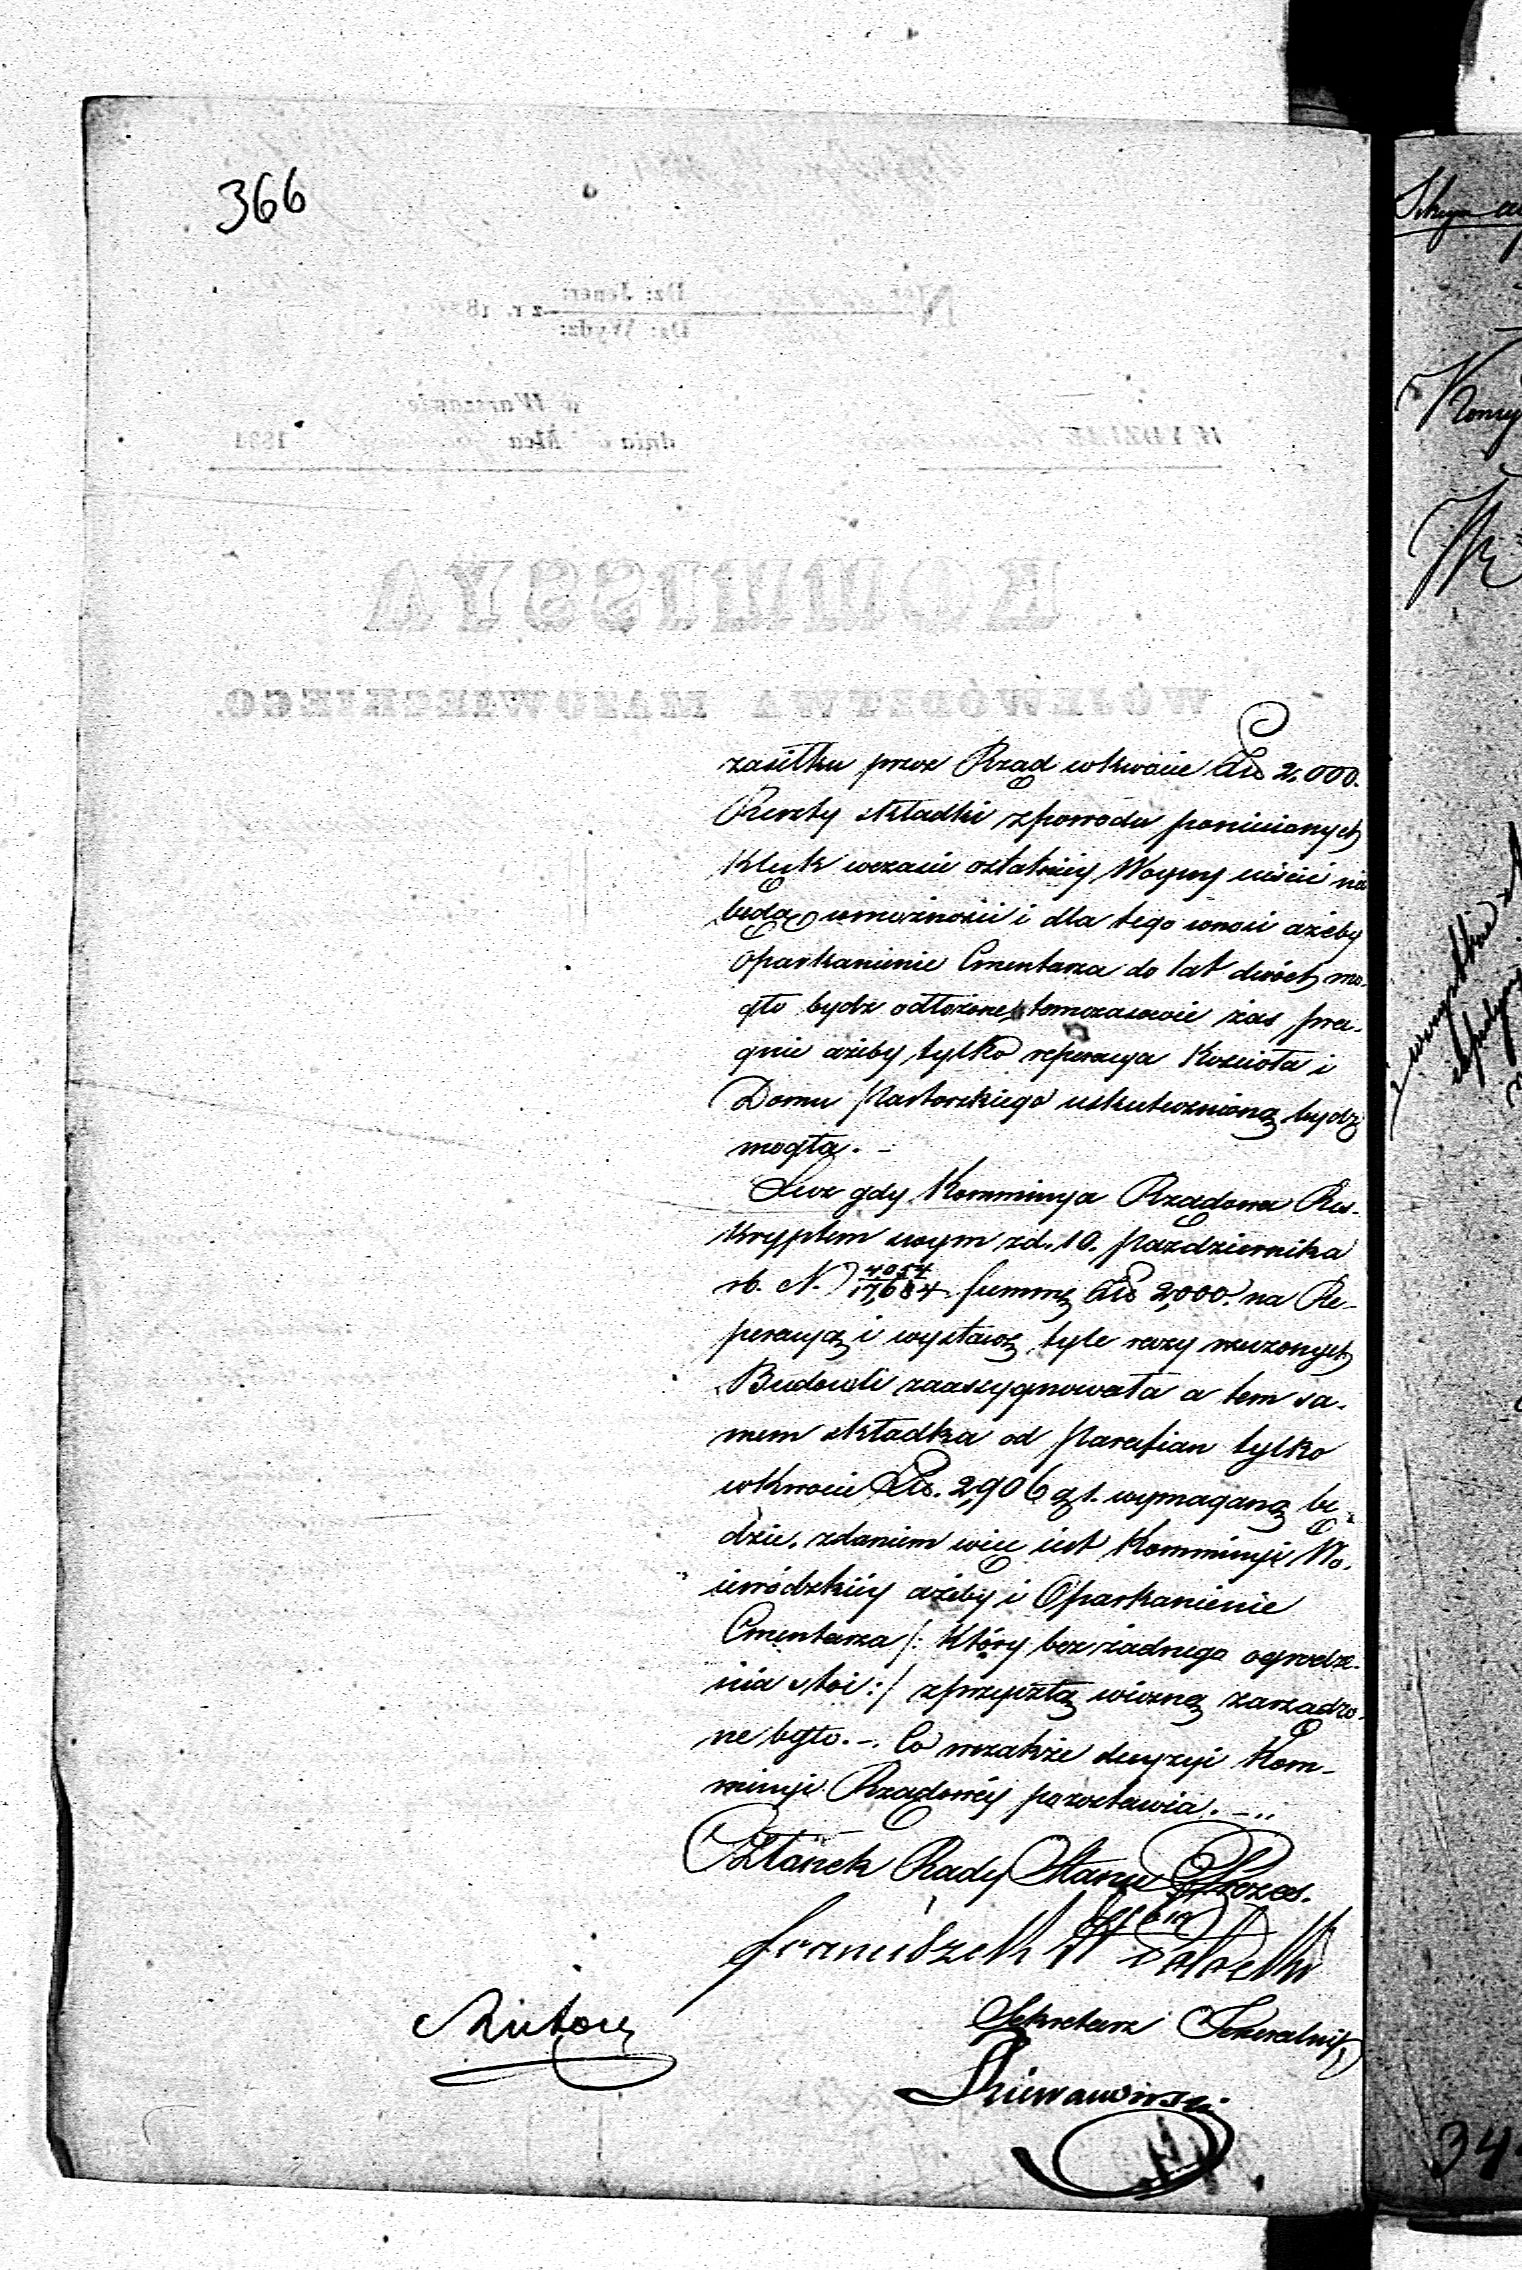 366
zasiłku przez Rząd w kwocie Złt 2,000.
Reszty składki z powodu poniesionych
klęsk w czasie ostatniéy Woyny uiścić nie
będą w możności i dla tego wnosi ażeby
Oparkanienie Cmentarza do lat dwóch mo-
gło bydź odłożone, tymczasowie zaś pra-
gnie ażeby tylko reperacya Kościoła i
Domu Pastorskiego uskutecznioną bydź
mogła. –
Lecz gdy Kommissya Rządowa Res-
kryptem swym z d. 10. Października
r b. N. 4054/17,684 summę Złt 2,000. na Re-
peracyą i wystawę tyle razy rzeczonych
Budowli zaassygnowała a tem sa-
mem składka od Parafian tylko
w kwocie Złt. 2,906 g 1. wymaganą bę-
dzie, zdaniem więc iest Kommissyi Wo-
iewódzkiéy ażeby i Oparkanienie
Cmentarza /: który bez żadnego ogrodze-
nia stoi :/ z przyszłą wiosną zarządzo-
ne było. –. Co wszakże decyzyi Kom-
missyi Rządowéy pozostawia. –..
Członek Rady Stanu Prezes.
Franciszek
Sekretarz Jeneralny
34